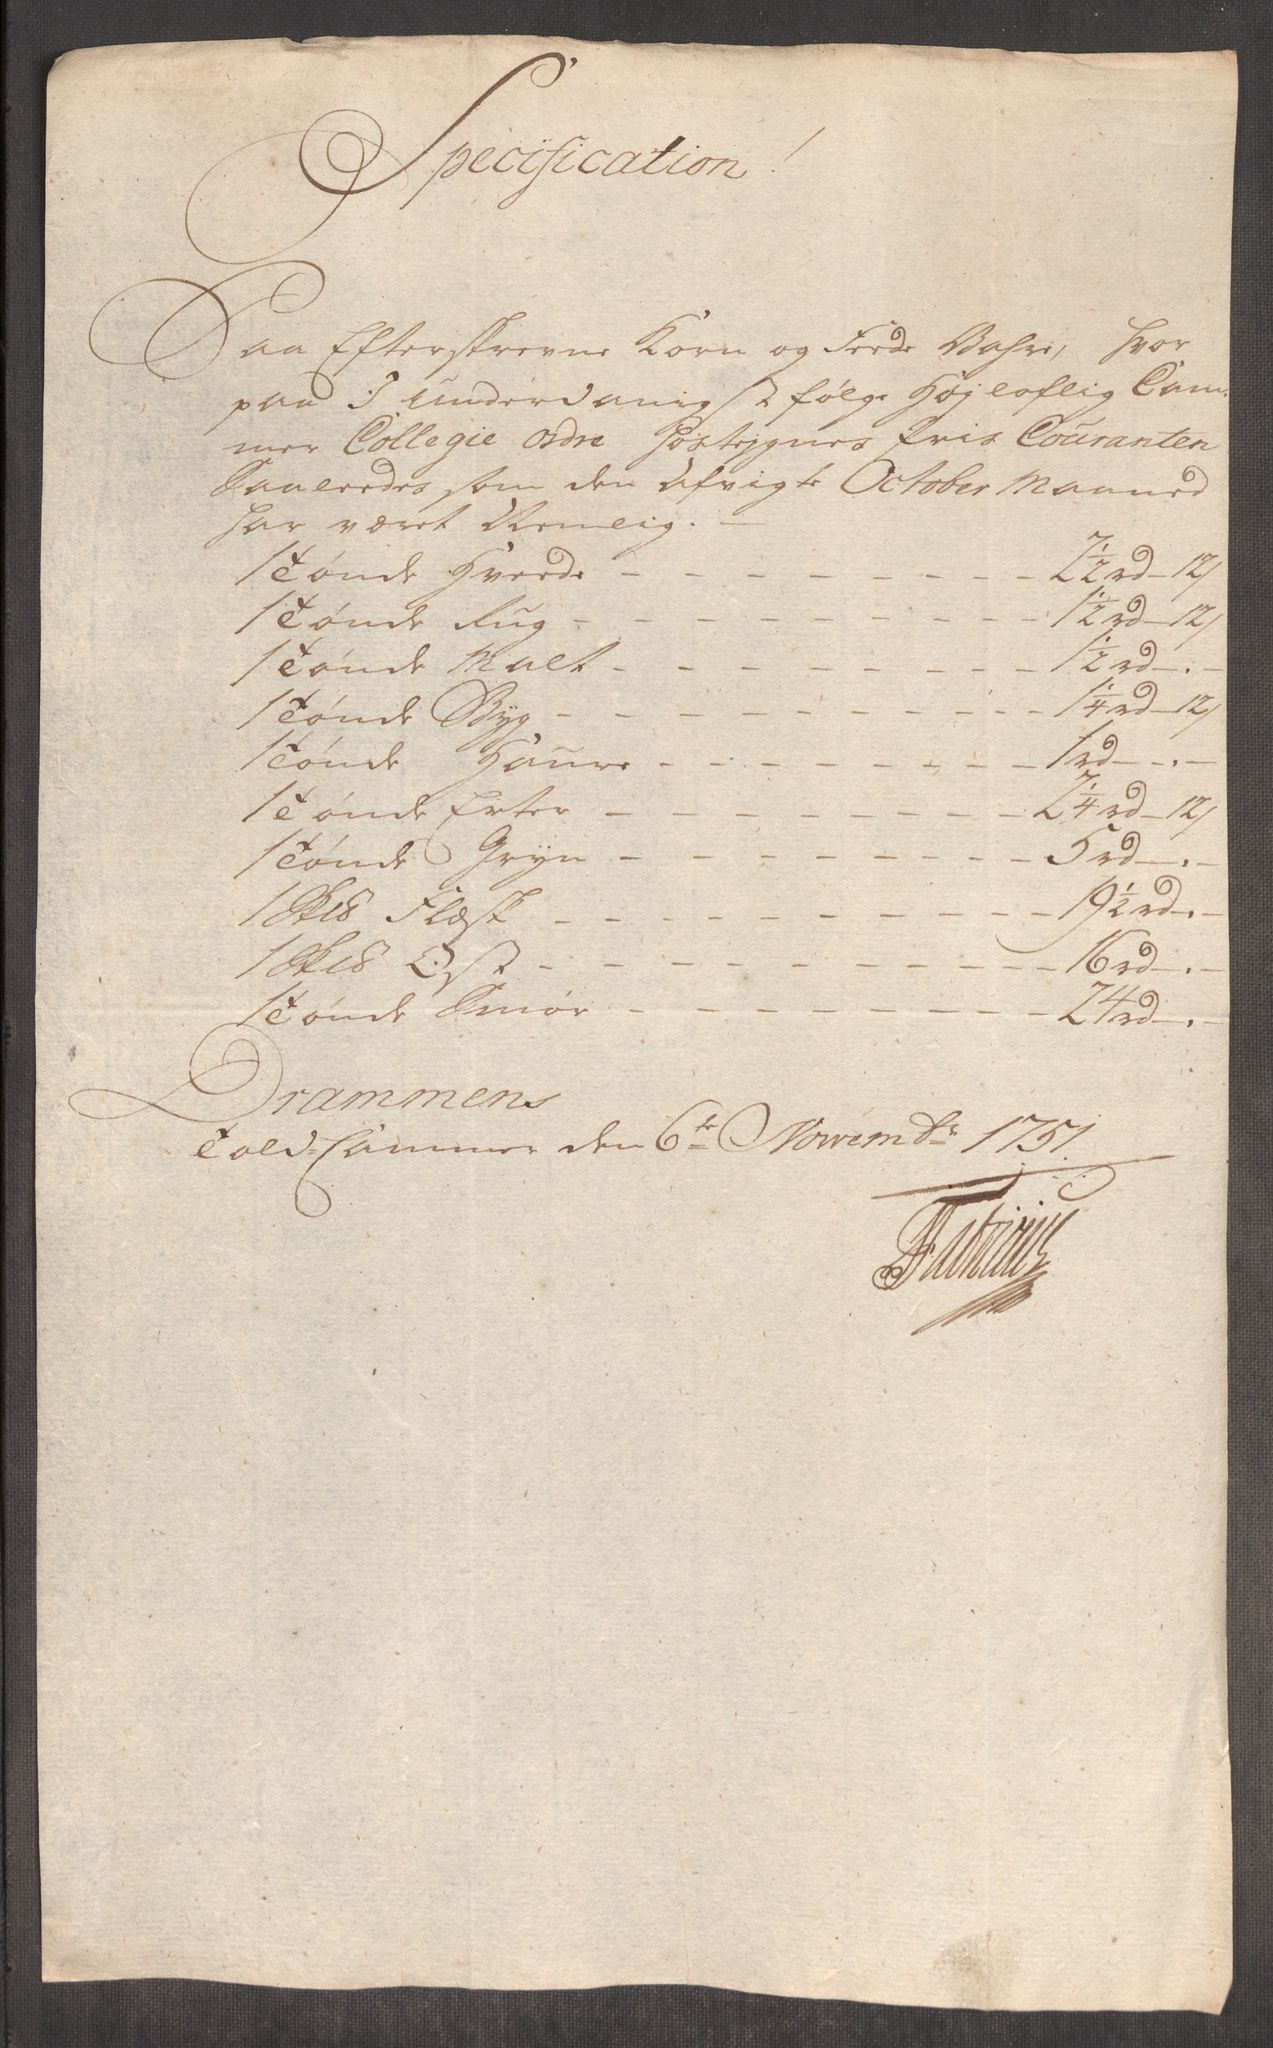 Specification!
Paa Efterskrevne Korn og Feede Vahre, hvor
paa I underdanigst følge Høj loflig Cam¬
mer Collegie ordre hostegnes Pris Couranten
Saaleedes som den Afvigte October Maaned
har været Nemlig. —
1 Tønde Hveede - - - 2½ rd - 12 s
1 Tønde Rug - - - 1½ rd - 12 s
1 Tønde Malt - - - 1½ rd - . -
1 Tønde Byg - - - 1¼ rd - 12 s
1 Tønde Haure - - - 1 rd - . -
1 Tønde Erter - - - 2¼ rd - 12 s
1 Tønde Gryn - - - 5 rd - . -
1 Sk℔ Flæsk - - - 19½ rd - . -
1 Sk℔ Ost - - - 16 rd - . -
1 Tønde Smør - - - 24 rd - . -
Drammens
Told-Cammer den 6te Novembr 1751